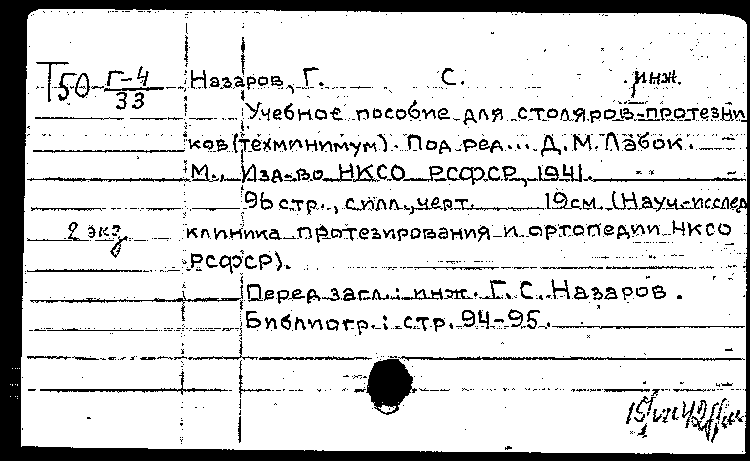 Т50 Г-4
33
Назаров, Г. С. инж.
Учебное пособие для столяров-протезни
ков (техминимум). Под ред... Д.М. Лабок.
М., Изд-во НКСО РСФСР, 1941.
96 стр., с илл., черт. 19 см. (Науч.-исслед
2 экз
клиника протезирования и ортопедии НКСО
РСФСР).
Перед загл.: инж. Г.С. Назаров.
Библиогр.: стр. 94-95.